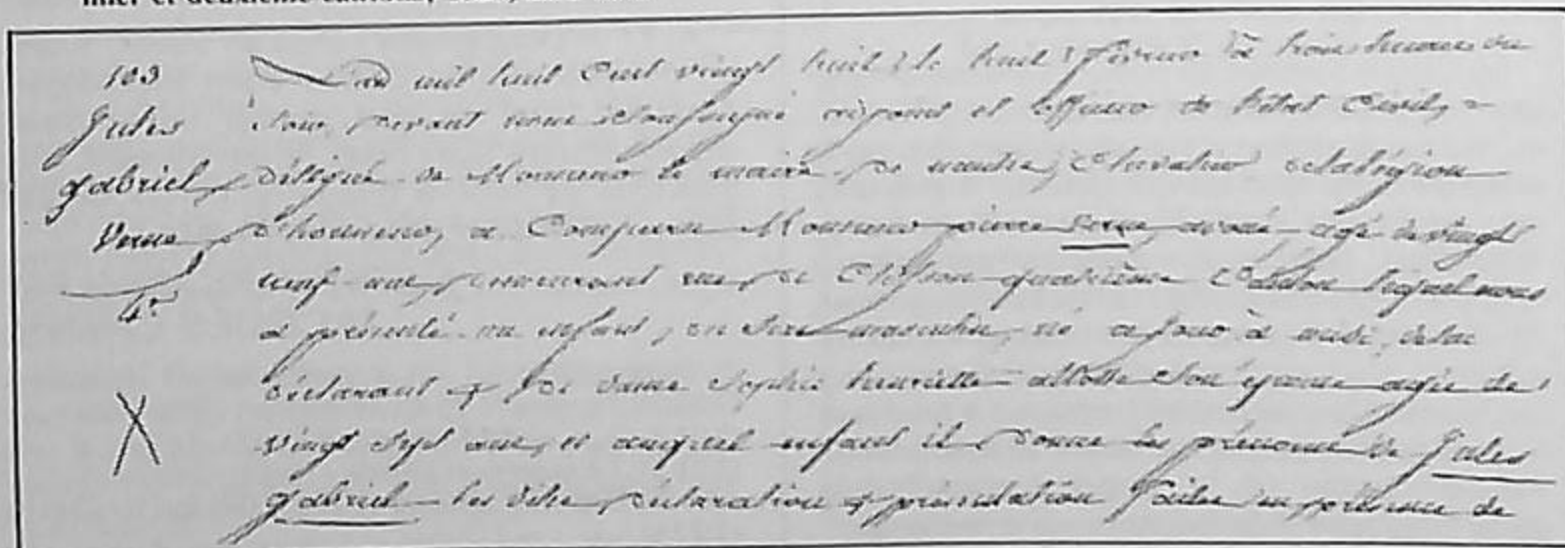 103
Jules
gabriel
Verne
4e
X
L'an mil huit Cent vingt huit, le huit février à trois heures du
soir, devant nous soussigné adjoint et officier de l'état Civil,
délégué de Monsieur le maire de nantes, Chevalier de la légion
d'honneur, a Comparu Monsieur pierre Verne, avoué, agé de vingt
neuf ans, demeurant rue de Clisson quatrième Canton lequel nous
a présenté un enfant, du sexe masculin, né ce jour à midi, de lui
déclarant & de dame Sophie henriette allotte son épouse agée de
vingt sept ans, et auquel enfant il donne les prénoms de Jules
gabriel les dites déclaration & présentation faites en présence de